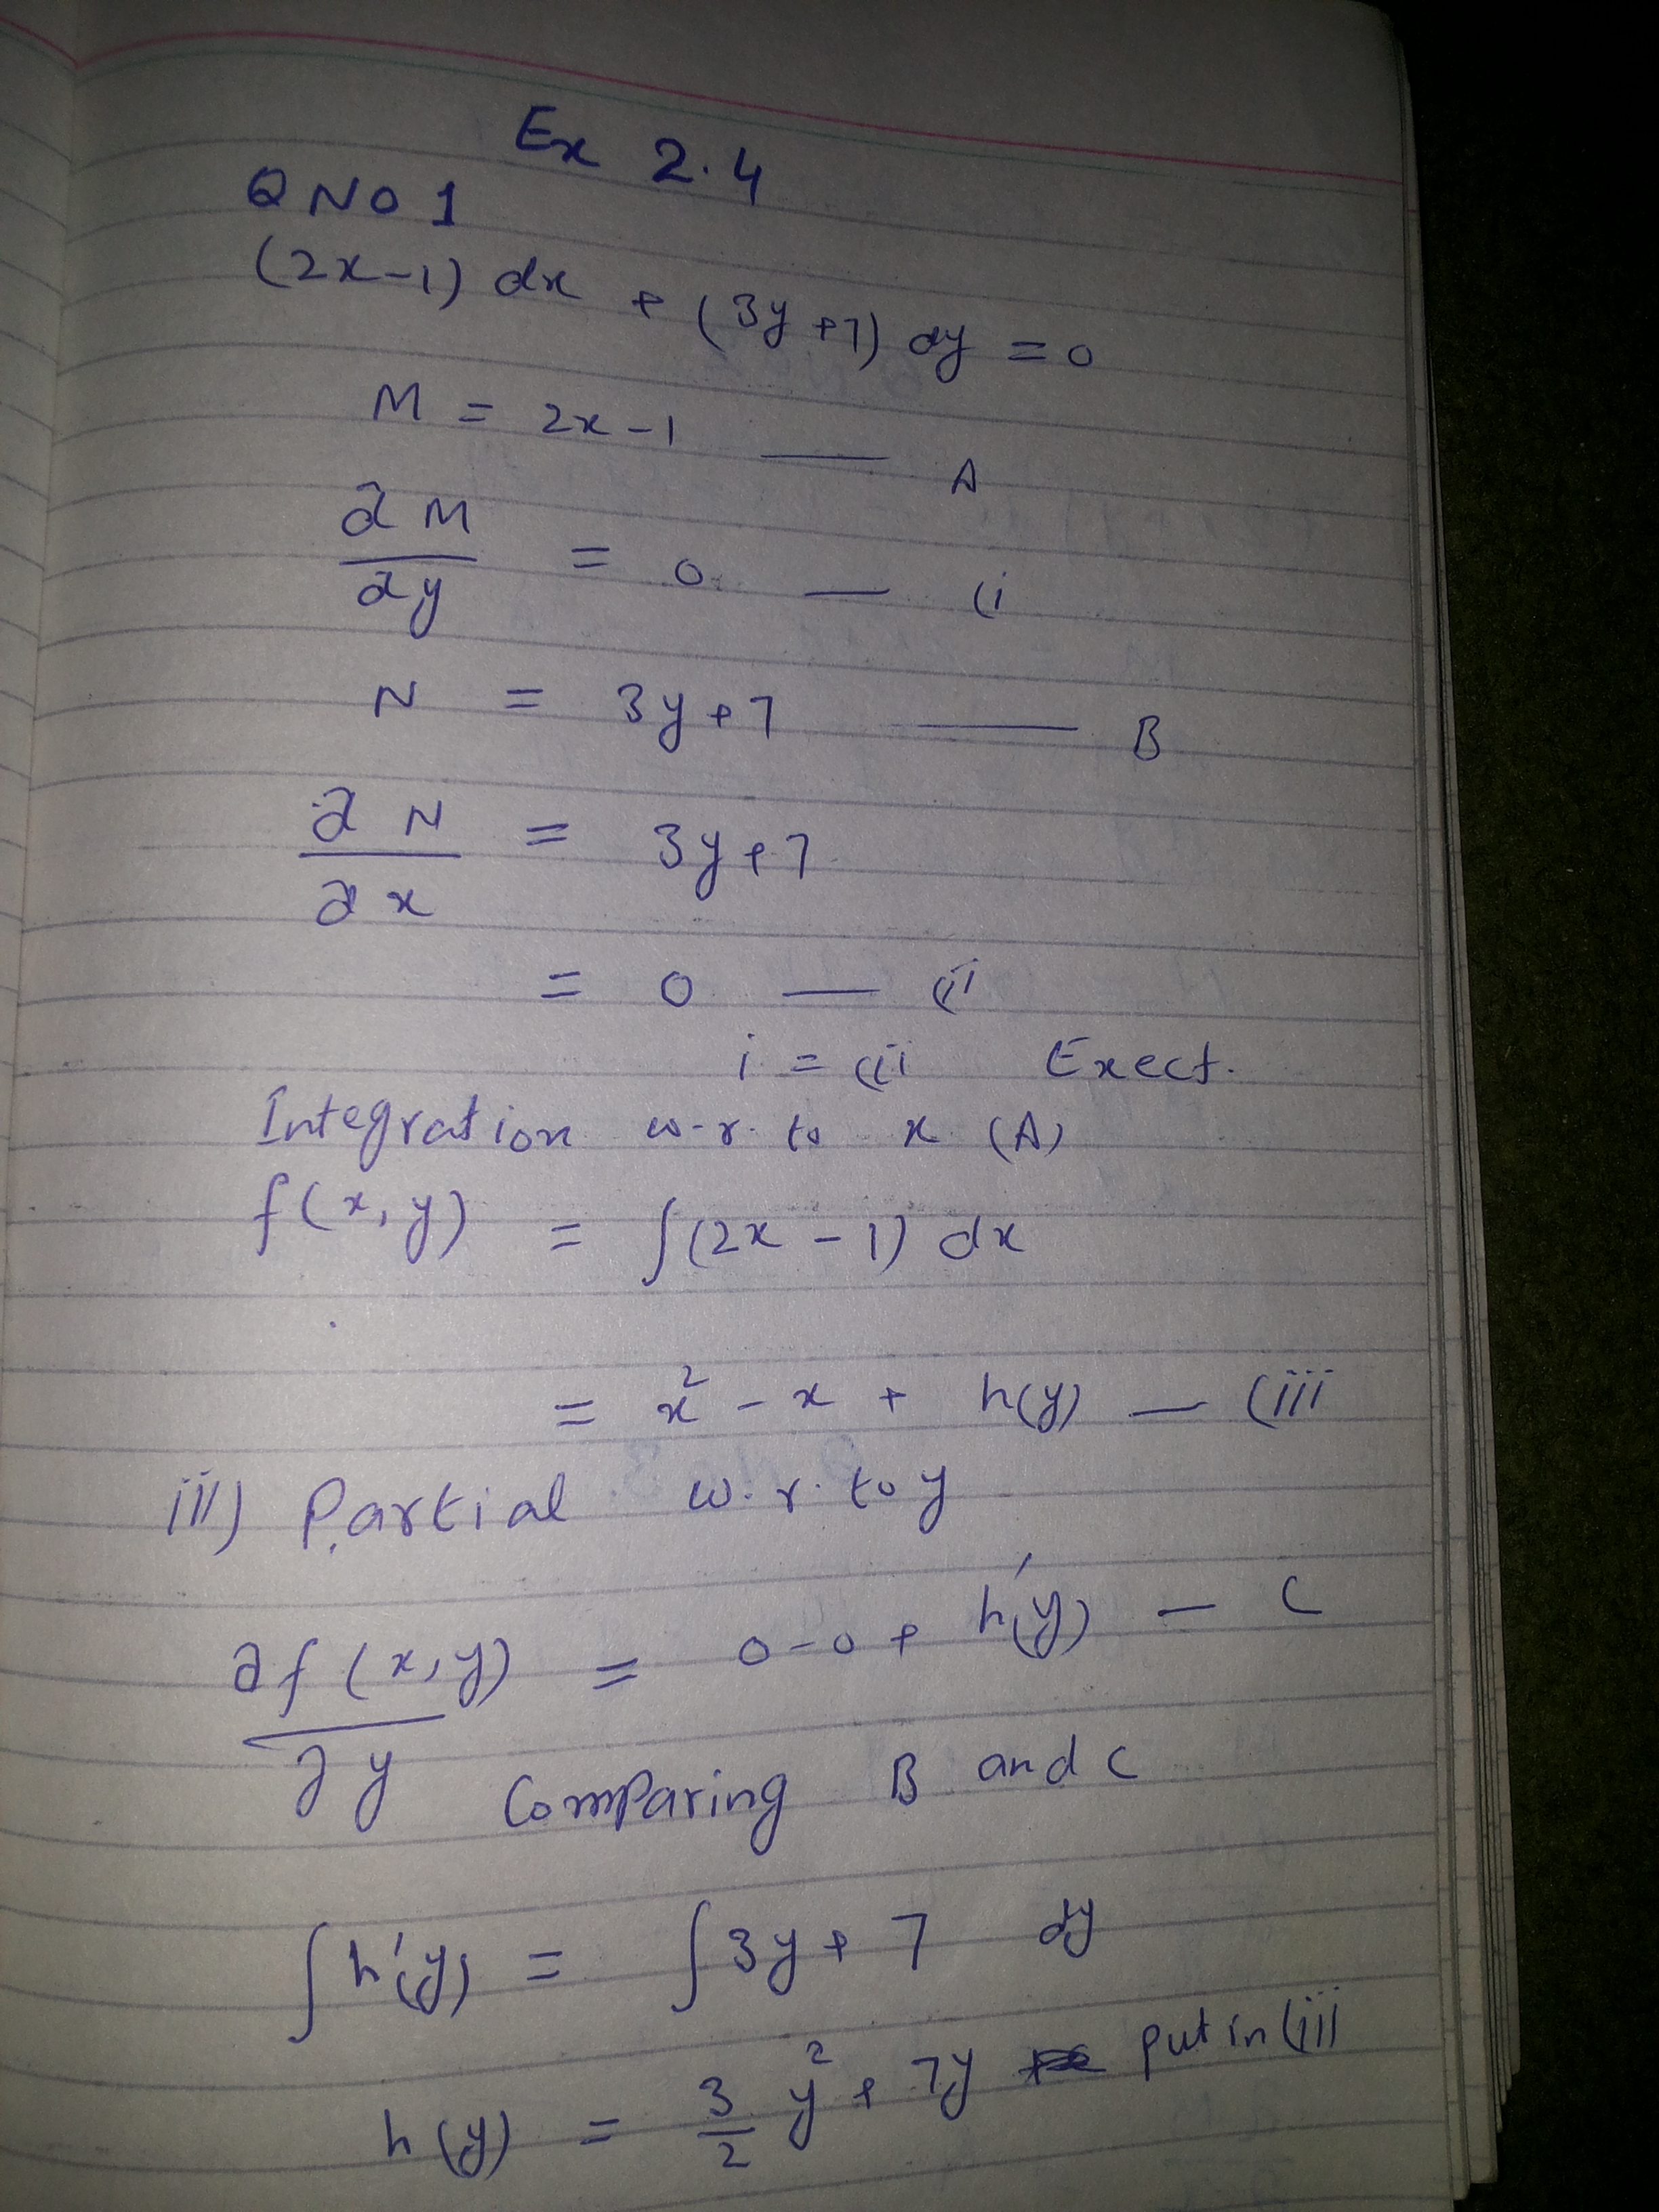 Ex 2.4
Q NO 1
(2x-1) dx + (3y+7) dy = 0
M = 2x-1 — A
∂M/∂y = 0 — (i
N = 3y+7 — B
∂N/∂x = 3y+7
= 0 — (ii
i = (ii Exect.
Integration w.r. to x (A)
f(x,y) = ∫(2x-1) dx
= x² - x + h(y) — (iii
iii) Partial w.r. to y
∂f(x,y)/∂y = 0-0+ h'(y) — C
Comparing B and C
∫h'(y) = ∫3y+7 dy
h(y) = 3/2 y² + 7y put in (iii